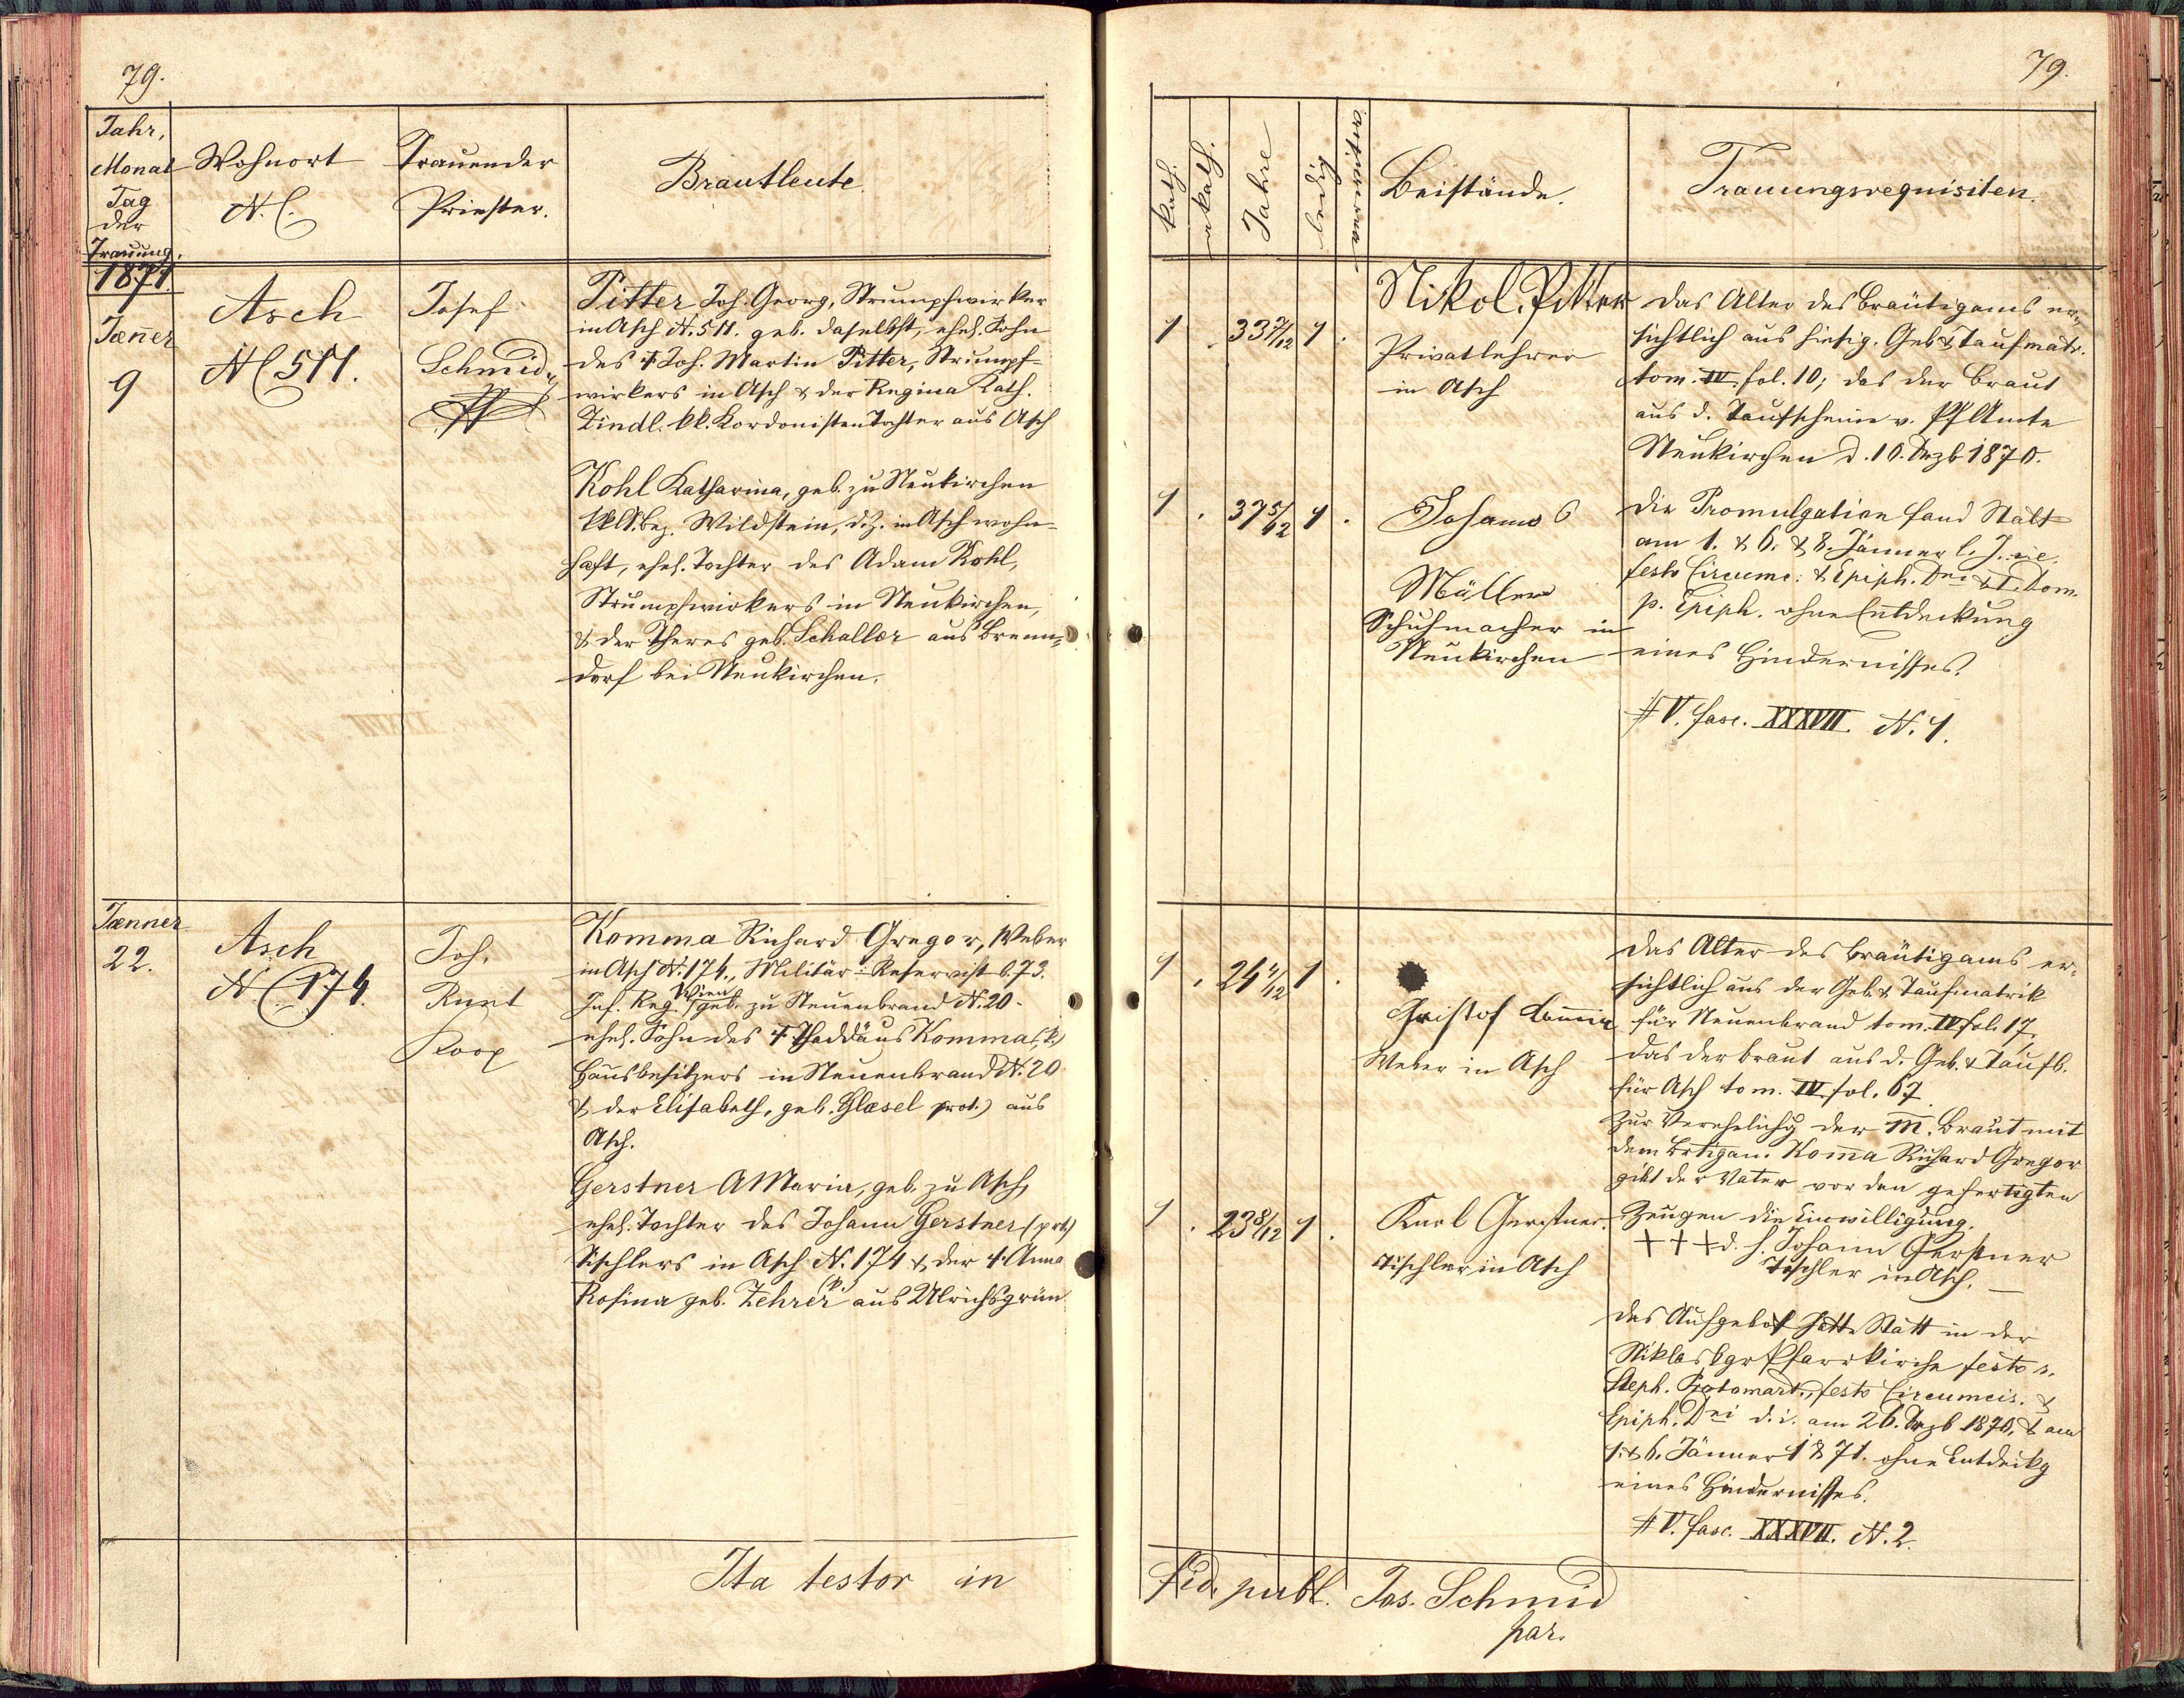 79.
Jahr,
Monat
Tag
der
Trauung.
Wohnort
N. C.
Trauender
Priester.
Brautleute.
1871.
Jänner
9
Asch
N C 511.
Josef
Schmid,
Pitter Joh. Georg, Strumpfwirker
in Asch N. 511. geb. daselbst, ehel. Sohn
des † Joh. Martin Pitter, Strumpf-
wirkers in Asch & der Regina Kath.
Zindl. kk. Kordonisten Tochter aus Asch
Kohl Katharina, geb. zu Neukirchen
Bez. Wildstein, d. Z. in Asch wohn-
haft, ehel. Tochter des Adam Kohl,
Strumpfwirkers in Neukirchen,
& der Theres geb. Schaller aus Brenn-
dorf bei Neukirchen.
Jænner
22.
Asch
N C 174.
Joh.
Kunt
Koop
Komma Richard Gregor, Weber
in Asch N. 174., Militär-Reservist b. 73.
Inf. Reg. Wien geb. zu Neuenbrand N. 20.
ehel. Sohn des † Thaddäus Komma, k.
Hausbesitzers in Neuenbrand N. 20
& der Elisabeth, geb. Glæsel prot.) aus
Asch.
Gerstner A Maria, geb. zu Asch,
ehel. Tochter des Johann Gerstner (prt)
Tischlers in Asch N. 174 & der †. Anna
Rosina geb. Zehrer (k.) aus Ulrichsgrün
Ita testor in
79.
kath.
akath.
Jahre
ledig
verwitwet
Beistände.
Trauungsrequisiten.
1 . 33 1/12 1 .
Nikol. Pitter
Privatlehrer
in Asch
Das Alter des Bräutigams er-
sichtlich aus hiesig. Geb & Taufmatr.
tom. IV. fol. 10; das der Braut
aus d. Taufscheine v. Pf Amte
Neukirchen d. 10. Dezb 1870.
1 . 37 5/12 1 .
Johann
Müller
Schuhmacher in
Neukirchen
Die Promulgation fand Statt
am 1. & 6. & 8. Jänner l. J. i. e.
festo Circumc. & Epiph. Dni & I. Dom.
p. Epiph. ohne Entdeckung
eines Hindernisses.
# V. fasc. XXXVII. N. 1.
1 . 24 4/12 1 .
Christof Komma
Weber in Asch
Das Alter des Bräutigams er-
sichtlich aus der Geb. & Taufmatrik
für Neuenbrand tom. IV fol. 17,
das der Braut aus d. Geb. & Taufb.
für Asch tom. IV fol. 67.
Zur Verehelichg der M. Braut mit
dem Brtigam Koma Richard Gregor
gibt der Vater vor den gefertigten
Zeugen die Einwilligung.
+ + + d. h. Johann Gerstner
Tischler in Asch.
1 . 23 8/12 1 .
Karl Gerstner.
Tischler in Asch
Das Aufgebot hatte Statt in der
Niklasbgr Pfarrkirche festo s.
Steph. Protomart., festo Circumcis. &
Epiph. Dni d. i. am 26. Dezb 1870, & am
1. & 6. Jänner 1871. ohne Entdeckg
eines Hindernisses.
# V. fasc. XXXVII. N. 2.
fid. publ. Jos. Schmid
par.